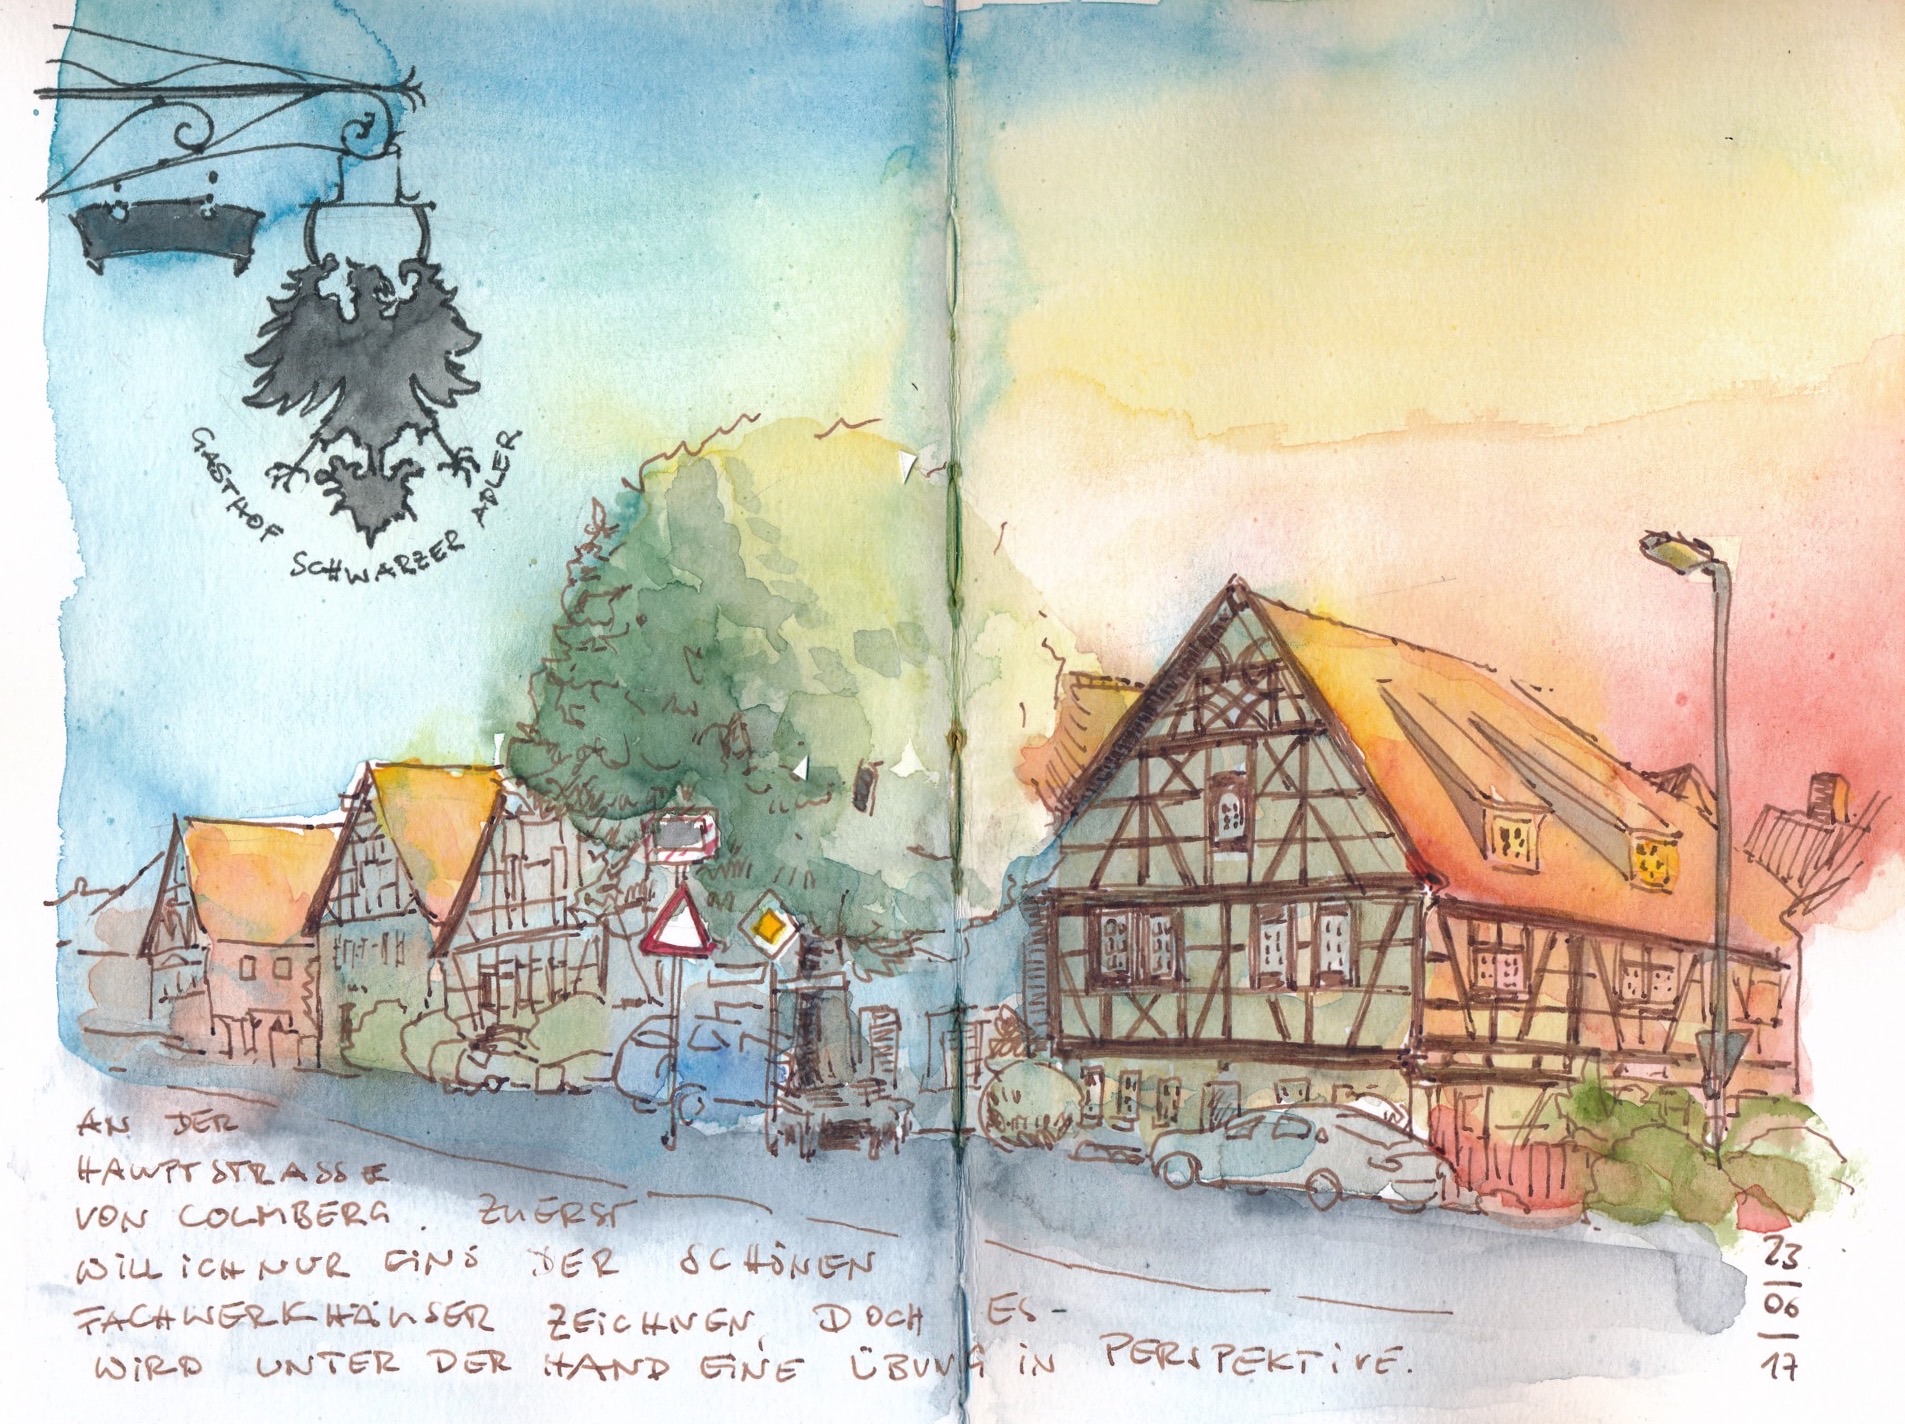 GASTHOF SCHWARZER ADLER
AN DER
HAUPTSTRASSE
VON COLMBERG. ZUERST
WILL ICH NUR EINS DER SCHÖNEN
FACHWERKHÄUSER ZEICHNEN, DOCH ES-
WIRD UNTER DER HAND EINE ÜBUNG IN PERSPEKTIVE.
23
06
17